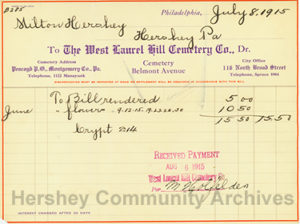 Philadelphia, July 8, 1915
Milton Hershey
Hershey Pa
To The West Laurel Hill Cemetery Co., Dr.
Cemetery Address
Pencoyd P.O., Montgomery Co., Pa.
Telephone, 1122 Manayunk
Cemetery
Belmont Avenue
City Office
116 North Broad Street
Telephone, Spruce
To Bill rendered 5 00
June " flowers 10 50
15 50 15 50
Crypt
RECEIVED PAYMENT
AUG 6 1915
West Laurel Hill Cemetery Co.
Per
INTEREST CHARGED AFTER 30 DAYS
Hershey Community Archives